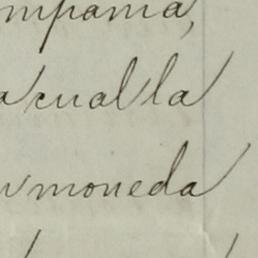 mpania,
a cual la
n moneda